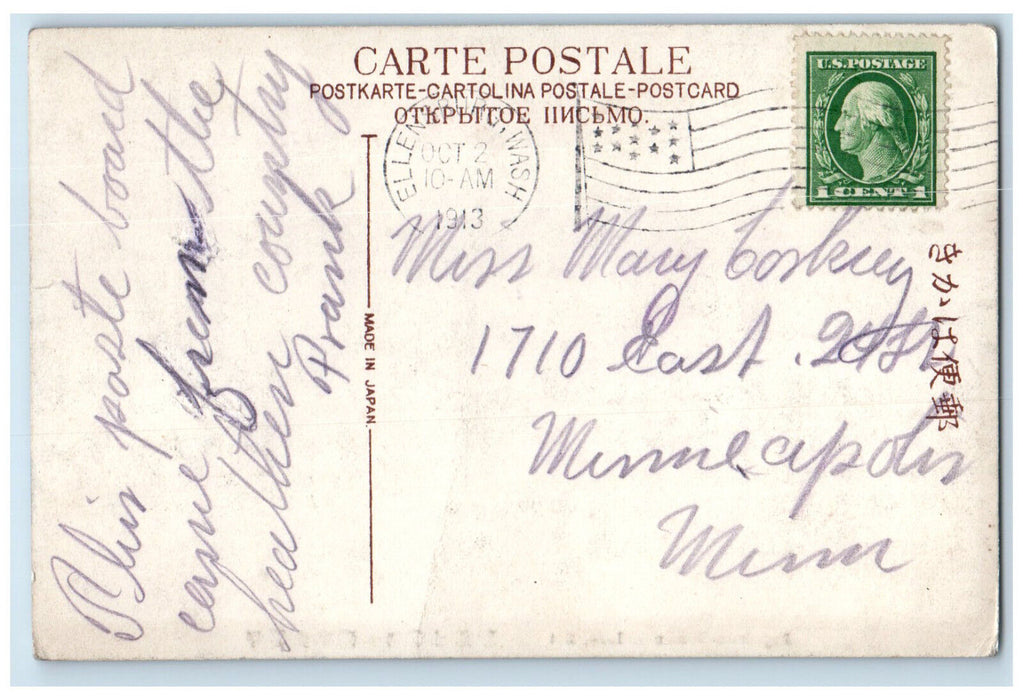 CARTE POSTALE
POSTKARTE-CARTOLINA POSTALE-POSTCARD
ОТКРЫТОЕ ПИСЬМО.
ELLENSBURG, WASH
OCT 2
10-AM
1913
U.S. POSTAGE
1 CENT 1
This paste board
came from the
heathen country
Frank
MADE IN JAPAN.
Miss Mary Corksey
1710 East
Minneapolis
Minn
きかは便郵